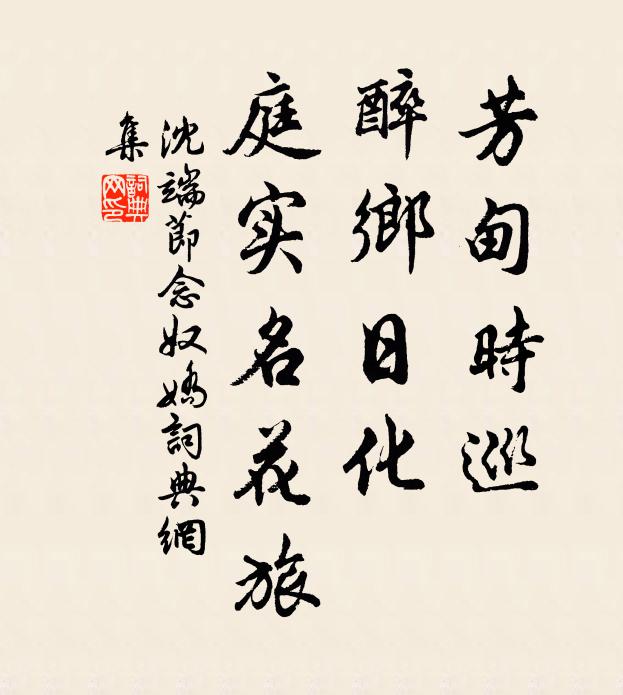 芳甸時巡
醉鄉日化
庭实名花旅
沈端節念奴嬌詞典網
集
詞典
网印